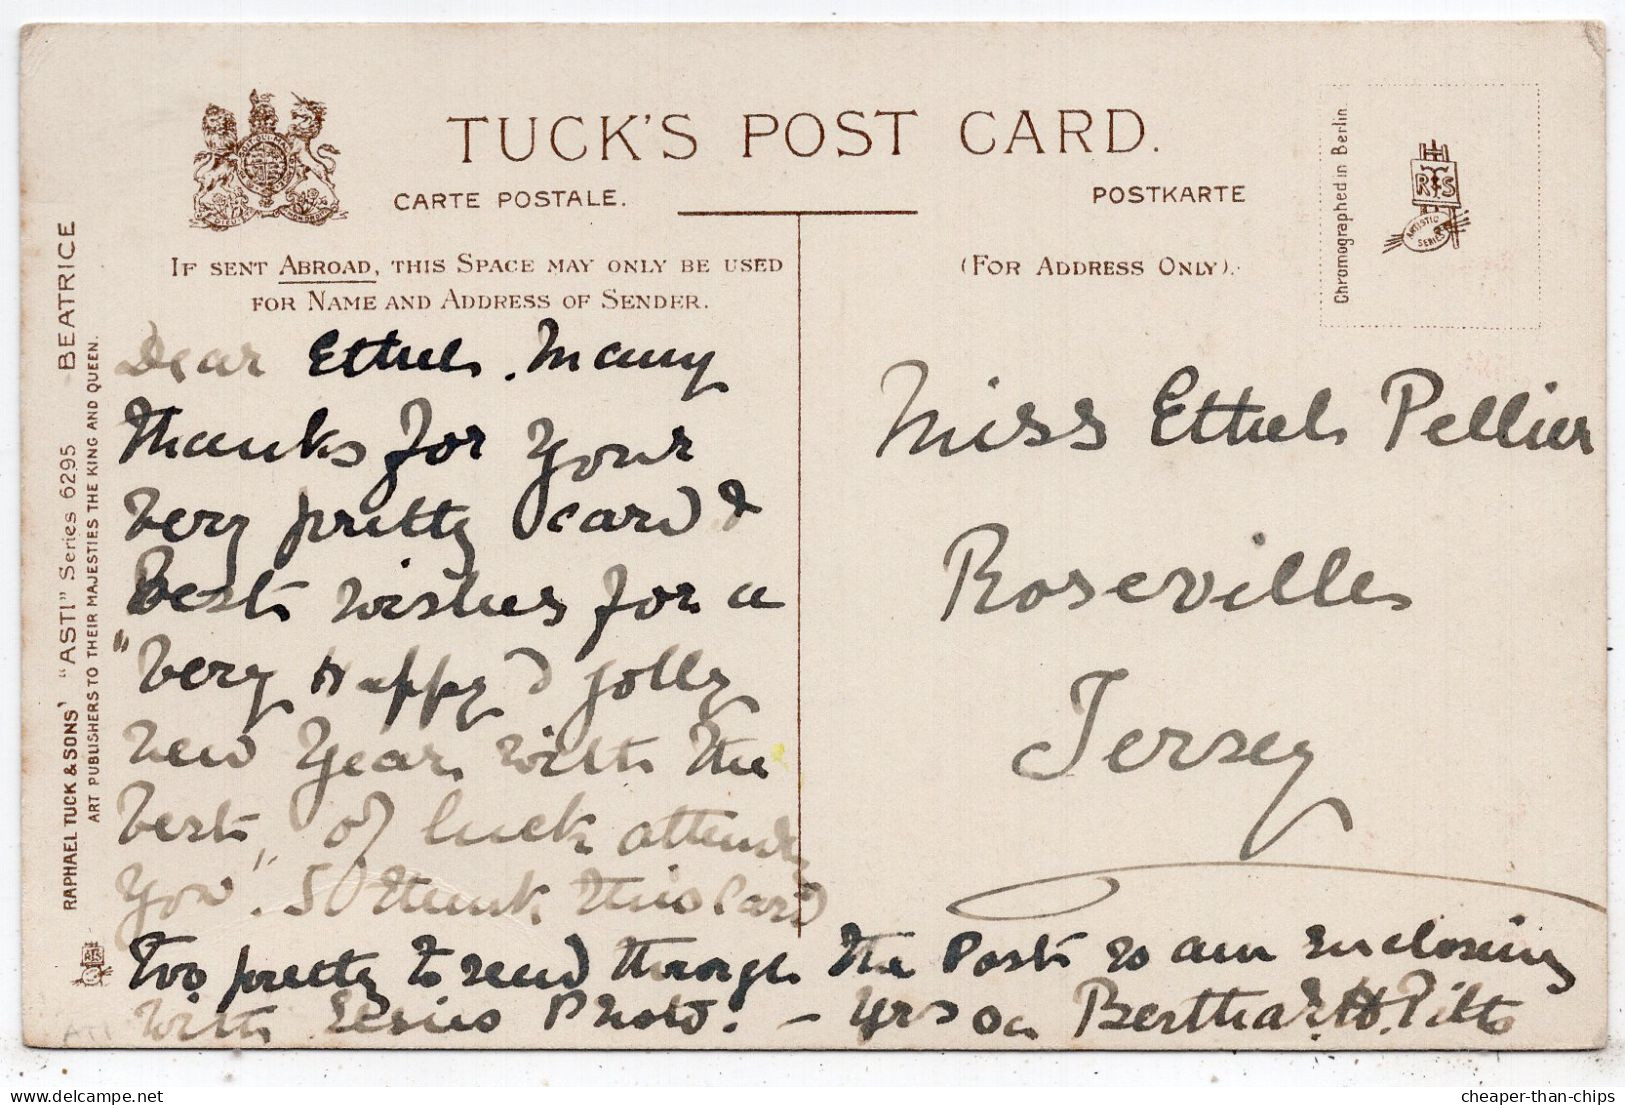 TUCK'S POST CARD.
CARTE POSTALE.
POSTKARTE
IF SENT ABROAD, THIS SPACE MAY ONLY BE USED
FOR NAME AND ADDRESS OF SENDER.
(FOR ADDRESS ONLY).
Chromographed in Berlin
R T S
ARTISTIC
SERIES
RAPHAEL TUCK & SONS' "ASTI" Series 6295 BEATRICE
ART PUBLISHERS TO THEIR MAJESTIES THE KING AND QUEEN.
Dear Ethel. Many
Thanks for your
very pretty card &
Best wishes for a
"Very Happy & jolly
New Year with the
best of luck attending
you". I think this card
too pretty to send through the Post so am enclosing
with Elsies Photo. - Yrs Bertha H. Pitts
Miss Ethel Pellier
Roseville
Jersey
cheaper-than-chips